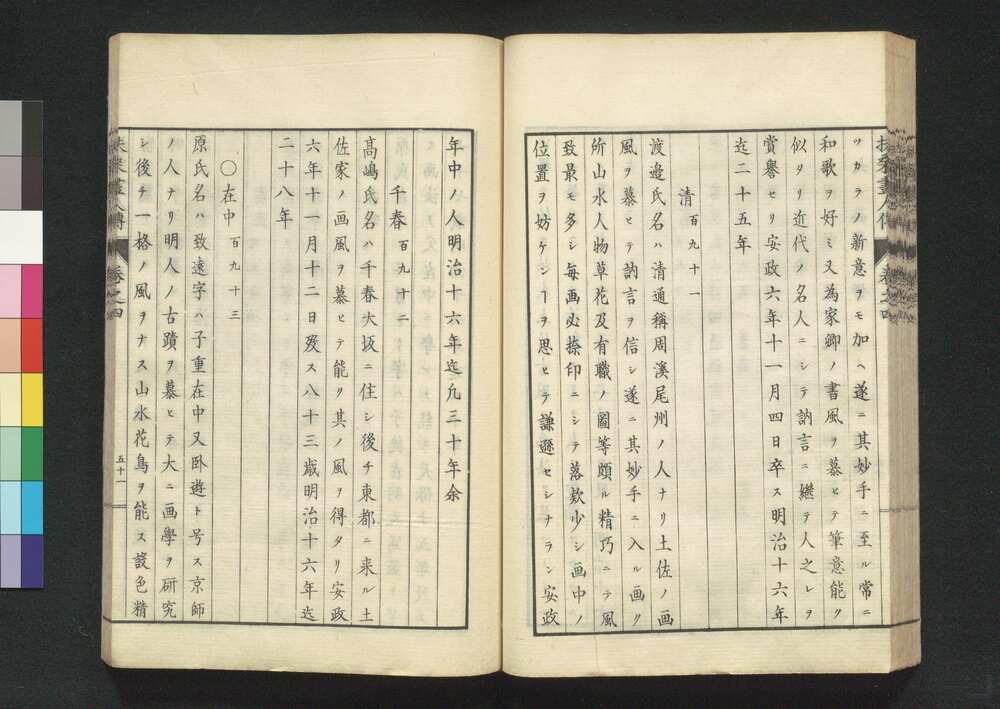 ツカラノ新意ヲモ加ヘ遂ニ其妙手ニ至ル常ニ
和歌ヲ好ミ又為家卿ノ書風ヲ慕ヒテ筆意能ク
似タリ近代ノ名人ニシテ訥言ニ継テ人之レヲ
賞誉セリ安政六年十一月四日卒ス明治十六年
迄二十五年
清 百九十一
渡邉氏名ハ清通稱周溪尾州ノ人ナリ土佐ノ画
風ヲ慕ヒテ訥言ヲ信シ遂ニ其妙手ニ入ル画ク
所山水人物草花及有職ノ圖等頗ル精巧ニテ風
致最モ多シ毎画必捺印ニシテ落款少シ画中ノ
位置ヲ妨ケンヿヲ思ヒテ謙遜セシナラン安政
年中ノ人明治十六年迄凢三十年余
千春 百九十二
高嶋氏名ハ千春大坂ニ住シ後チ東都ニ来ル土
佐家ノ画風ヲ慕ヒテ能ク其ノ風ヲ得タリ安政
六年十一月十二日歿ス八十三歳明治十六年迄
二十八年
〇在中 百九十三
原氏名ハ致遠字ハ子重在中又卧遊ト号ス京師
ノ人ナリ明人ノ古蹟ヲ慕ヒテ大ニ画學ヲ研究
シ後チ一格ノ風ヲナス山水花鳥ヲ能ス設色精
扶桑畫人傳 卷之四 五十一